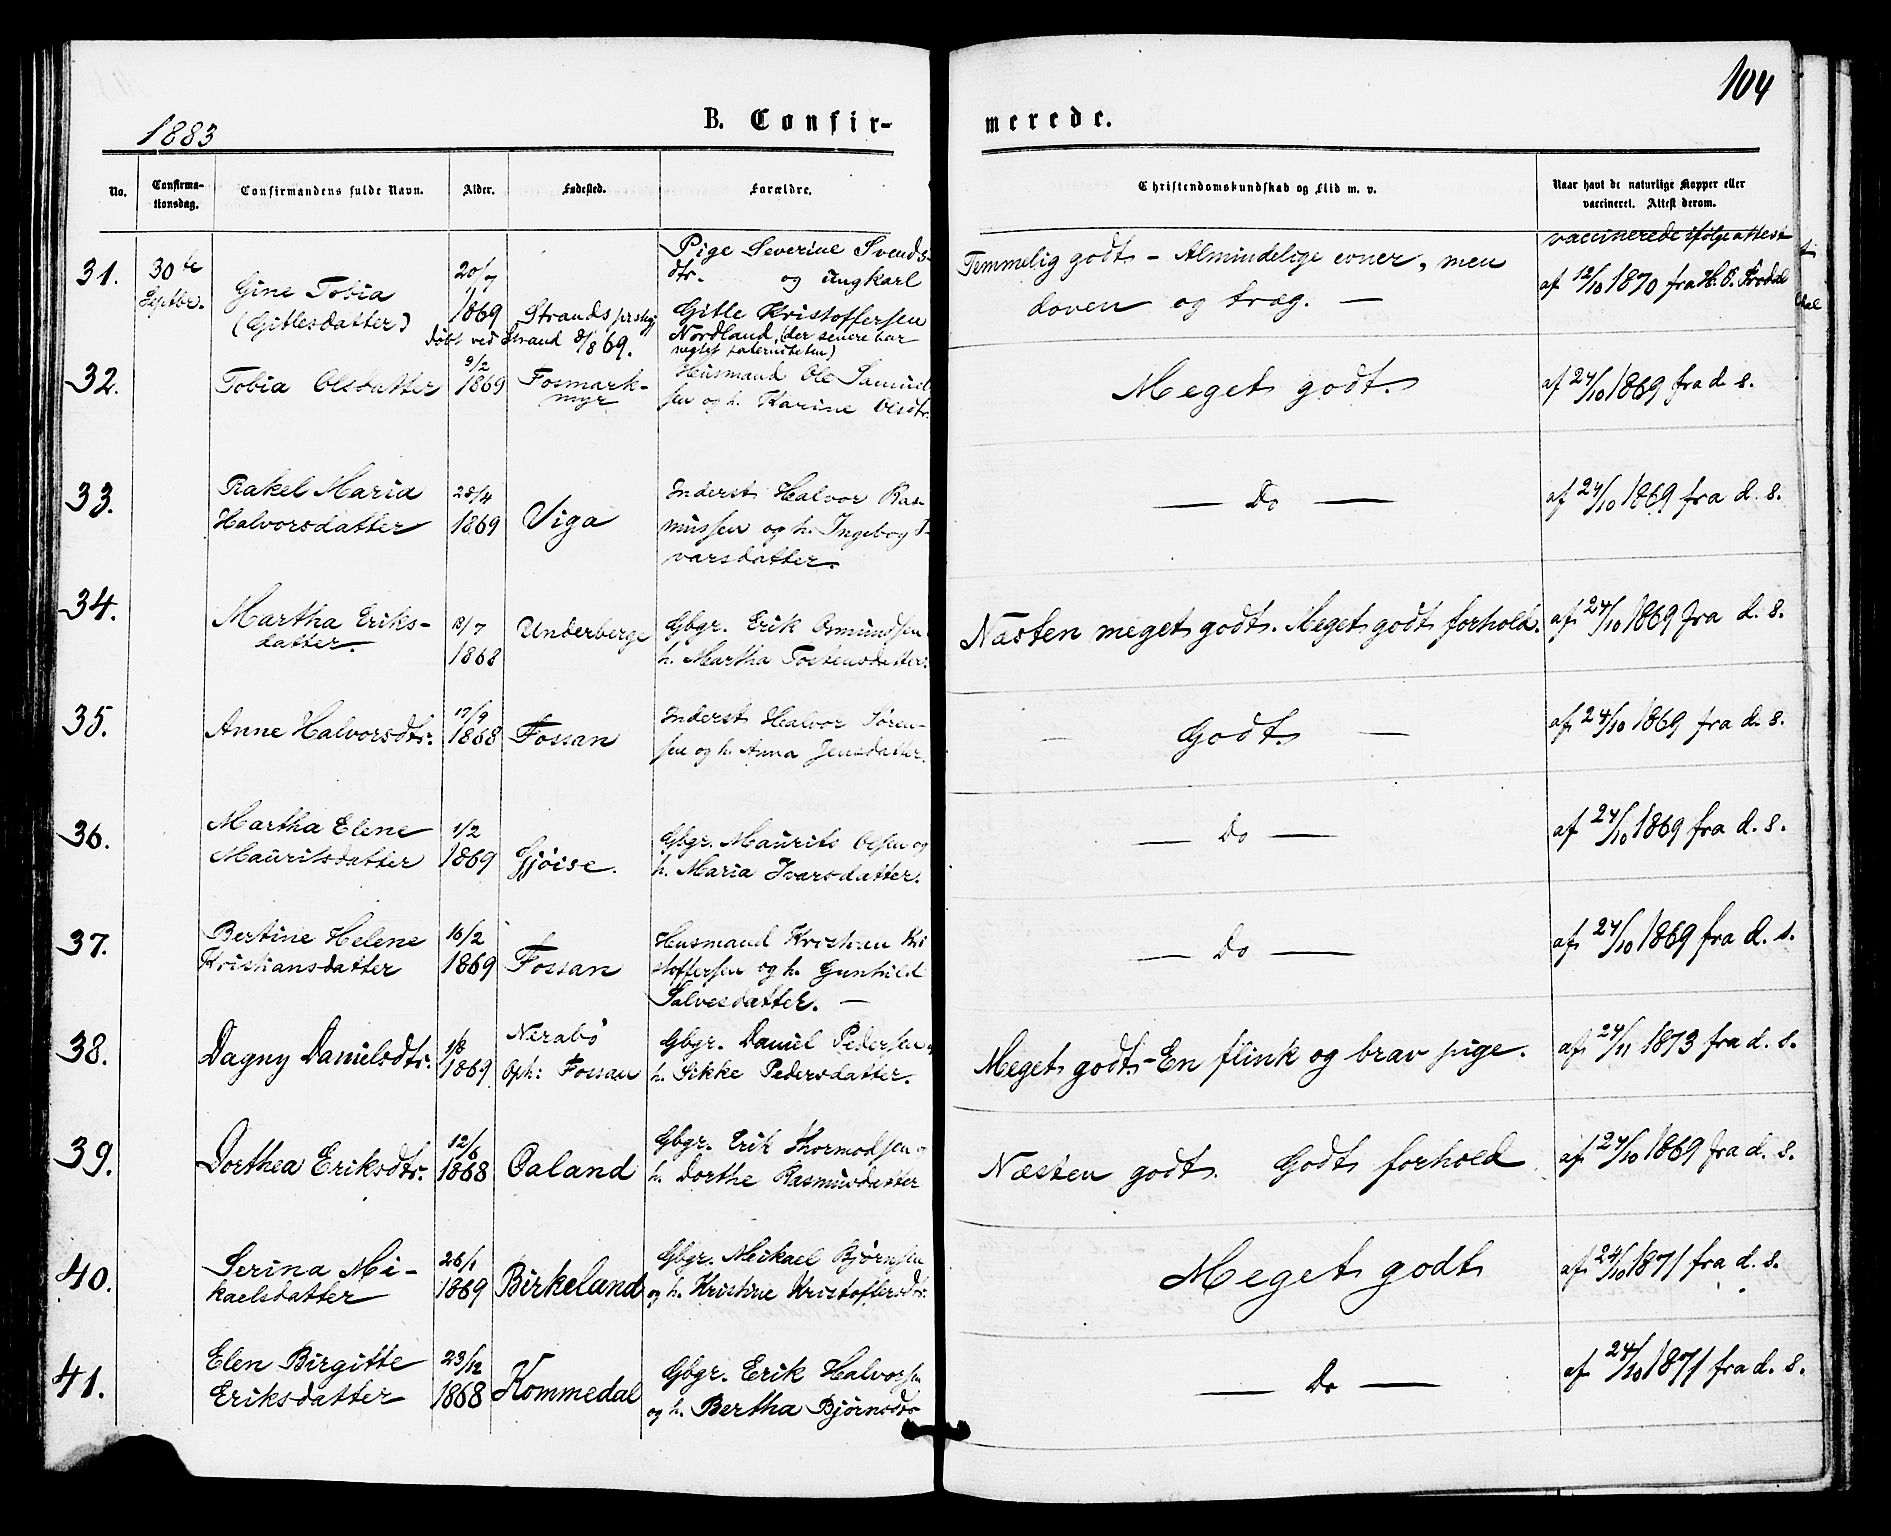 104
1883
B. Confir-
merede.
No.
Confirma-
tionsdag.
Confirmandens fulde Navn.
Alder.
Fødested.
Forældre.
Christendomskundskab og Flid m. v.
Naar havt de naturlige Kopper eller
vaccineret. Attest derom.
31.
30te
Septbr.
Gine Tobia
(Gitlesdatter)
20/7
1869
Strands prstgj
døbt ved Strand 8/8 69.
Pige Severine Svends-
dtr. og ungkarl
Gitle Kristoffersen
Nordland, (der senere har
negtet paterniteten)
Temmelig godt - Almindelige evner, men
doven og træg. —
vaccinerede ifølge attest
af 12/10 1870 fra H. B.
32.
Tobia Olsdatter
9/2
1869
Fosmark-
myr
Husmand Ole Samuel-
sen og h. Karine Olsdtr.
Meget godt.
af 24/10 1869 fra d. s.
33.
Rakel Maria
Halvorsdatter
28/4
1869
Viga
Inderst Halvor Ras-
mussen og h. Ingebog I-
varsdatter.
— Do —
af 24/10 1869 fra d. s.
34.
Martha Eriks-
datter.
12/7
1868
Underberge
Gbgr. Erik Osmundsen
h. Martha Tostensdatter.
Næsten meget godt. Meget godt forhold.
af 24/10 1869 fra d. s.
35.
Anne Halvorsdtr.
17/9
1868
Fossan
Inderst Halvor Søren-
sen og h. Anna Jensdatter.
— Godt. —
af 24/10 1869 fra d. s.
36.
Martha Elene
Mauritsdatter
1/2
1869
Gjøise.
Gbgr. Maurits Olsen og
h. Maria Ivarsdatter.
— Do —
af 24/10 1869 fra d. s.
37.
Bertine Helene
Kristiansdatter
16/2
1869
Fossan
Husmand Kristian Kri
stoffersen og h. Gunhild
Salvesdatter. —
— Do —
af 24/10 1869 fra d. s.
38.
Dagny Danielsdtr.
1/3
1869
Nerabø
Oph: Fossan
Gbgr. Daniel Pedersen
h. Sikke Pedersdatter.
Meget godt - En flink og brav pige.
af 24/11 1873 fra d. s.
39.
Dorthea Eriksdtr.
12/6
1868
Oaland
Gbgr. Erik Thormodsen og
h. Dorthe Rasmusdatter
Næsten godt. Godt forhold
af 24/10 1869 fra d. s.
40.
Serina Mi-
kaelsdatter
26/1
1869
Birkeland
Gbgr. Mikael Bjørnsen
og h. Kristine Kristoffersdtr.
Meget godt
af 24/10 1871 fra d. s.
41.
Elen Birgitte
Eriksdatter
23/12
1868
Kommedal
Gbgr. Erik Halvorsen
og h. Bertha Bjørnsdtr
— Do —
af 24/10 1871 fra d. s.